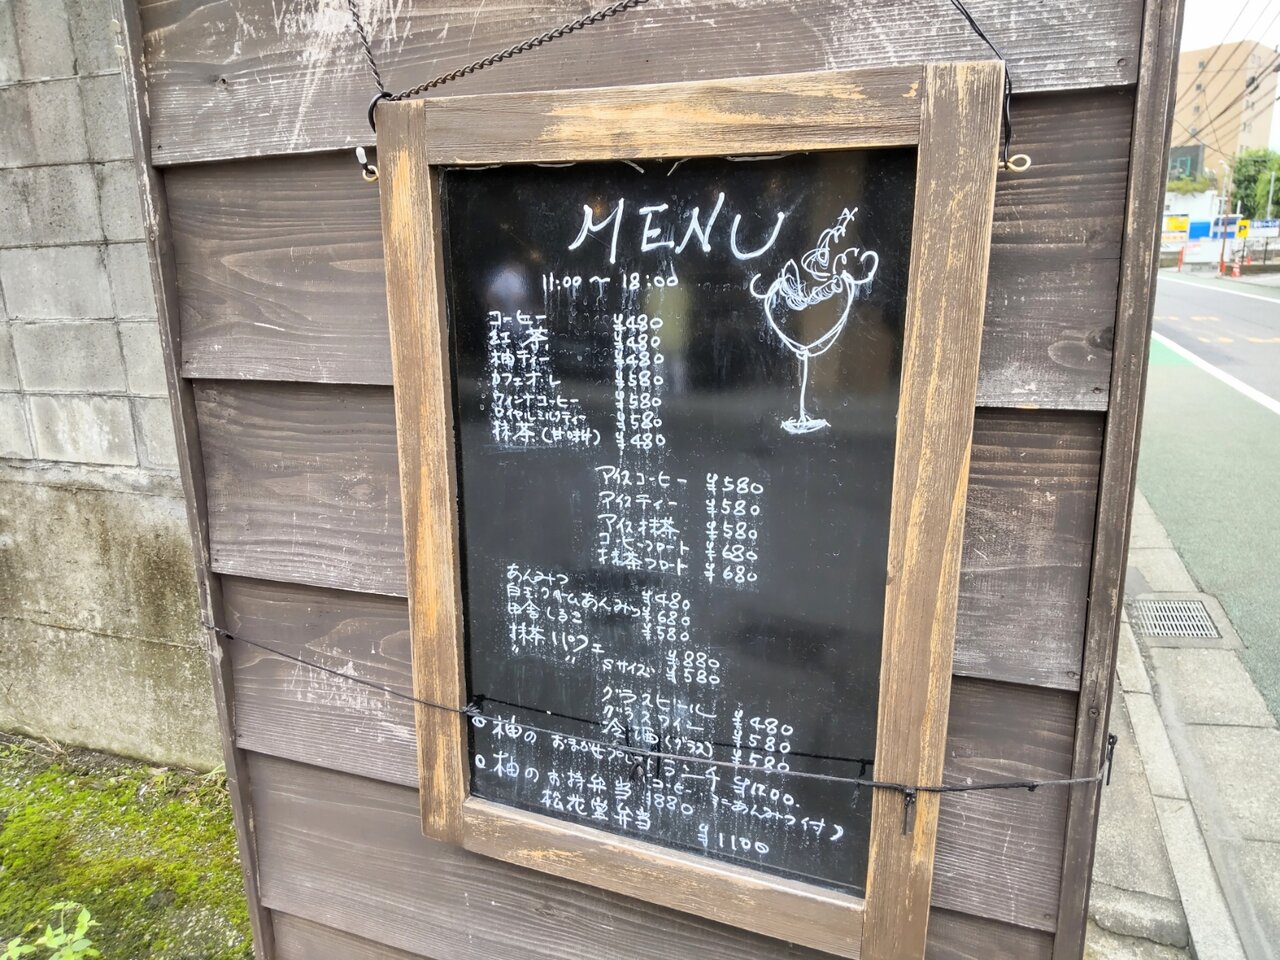 MENU
11:00 〜 18:00
コーヒー ¥480
紅茶 ¥480
柚ティー ¥480
カフェオレ ¥580
ウィンナコーヒー ¥580
ロイヤルミルクティー ¥580
抹茶(甘味付) ¥480
アイスコーヒー ¥580
アイスティー ¥580
アイス抹茶 ¥580
コーヒーフロート ¥680
抹茶フロート ¥680
あんみつ ¥480
白玉クリームあんみつ ¥680
田舎しるこ ¥580
抹茶パフェ ¥880
〃 〃 Sサイズ ¥580
グラスビール ¥480
グラスワイン ¥580
冷酒(グラス) ¥580
柚の おまかせプレートランチ ¥1200
コーヒー or あんみつ付)
柚のお持弁当 ¥880
松花堂弁当 ¥1100